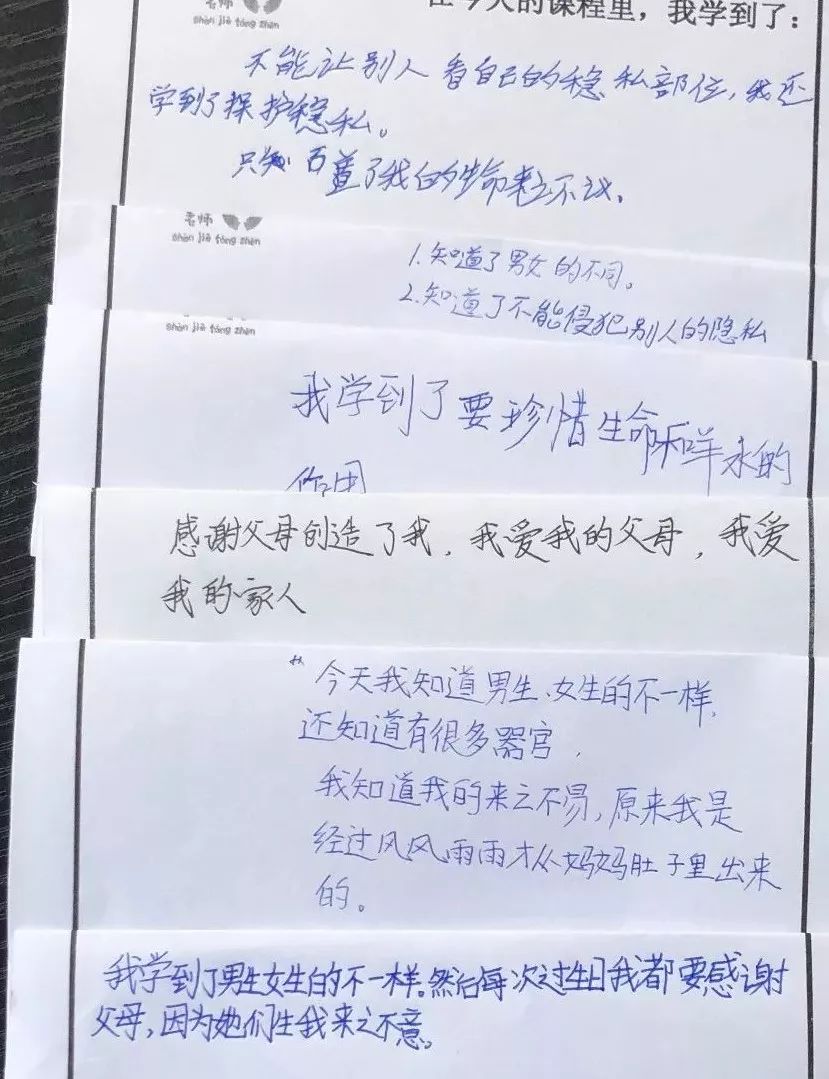 老师
shàn jiě fáng zhěn
在今天的课程里，我学到了：
不能让别人看自己的稳私部位，我还
学到了探护稳私。
只知 了我的生命来之不议。
老师
shàn jiě fáng zhěn
1.知道了男女的不同。
2.知道了不能侵犯别人的隐私
shàn jiě fáng zhěn
我学到了要珍惜生命和羊水的
作用
感谢父母创造了我，我爱我的父母，我爱
我的家人
今天我知道男生、女生的不一样，
还知道有很多器官，
我知道我的来之不易，原来我是
经过风风雨雨才从妈妈肚子里出来
的。
我学到了男生女生的不一样。然后每次过生日我都要感谢
父母，因为她们生我来之不意。